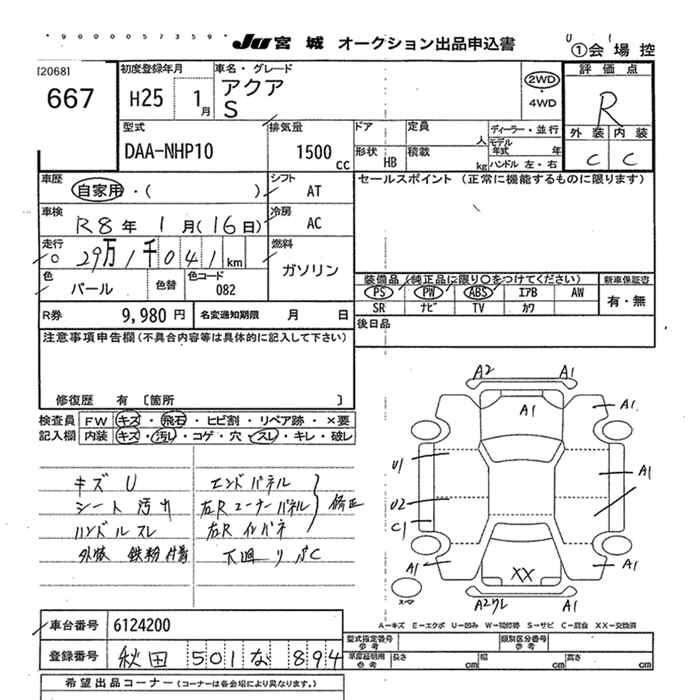 *9000057359*
JU 宮城 オークション出品申込書 ①会場控
[2068]
667
初度登録年月
H25 1月
車名・グレード
アクア
S
2WD
・
4WD
評価点
R
外装 内装
C C
型式
DAA-NHP10
排気量
1500 cc
ドア 定員 人
形状 HB 積載 kg
ディーラー・並行
モデル年式 年
ハンドル 左・右
車歴
自家用・( )
シフト AT
車検
R8年 1月(16日)
冷房 AC
走行
29万1千041km
燃料
ガソリン
色
パール
色替
色コード
082
R券 9,980円 名変通知期限 月 日
セールスポイント (正常に機能するものに限ります)
装備品 (純正品に限り○をつけてください)
PS PW ABS エアB AW
SR ナビ TV カワ
新車保証書
有・無
後日品
注意事項申告欄 (不具合内容等は具体的に記入して下さい)
修復歴 有 〔箇所 〕
検査員 FW キズ・飛石・ヒビ割・リペア跡・×要
記入欄 内装 キズ・汚レ・コゲ・穴・スレ・キレ・破レ
キズ U
シート 汚れ
ハンドル スレ
外装 鉄粉付着
エンドパネル
左Rコーナーパネル
右Rインパネ
修正
下廻り サC
A2 A1
A1
A1
U1
A1
U2
C1
A1
A1
XX
A1
A2ワレ A1
A−キズ E−エクボ U−凹み W−補修跡 S−サビ C−腐食 XX−交換済
車台番号 6124200
登録番号 秋田 501 な 894
型式指定番号 参考
類別区分番号 参考
車庫証明用 参考 長さ cm 幅 cm 高さ cm
希望出品コーナー (コーナーは各会場により異なります。)